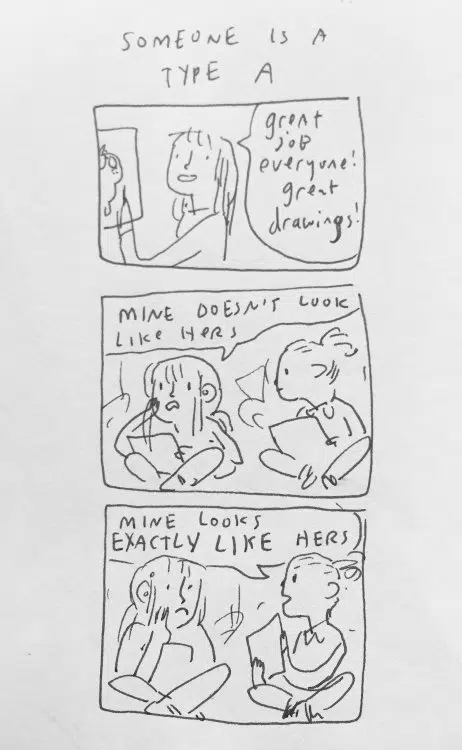 SOMEONE IS A
TYPE A
great
job
everyone!
great
drawings!
MINE DOESN'T LOOK
LIKE HERS
MINE LOOKS
EXACTLY LIKE HERS